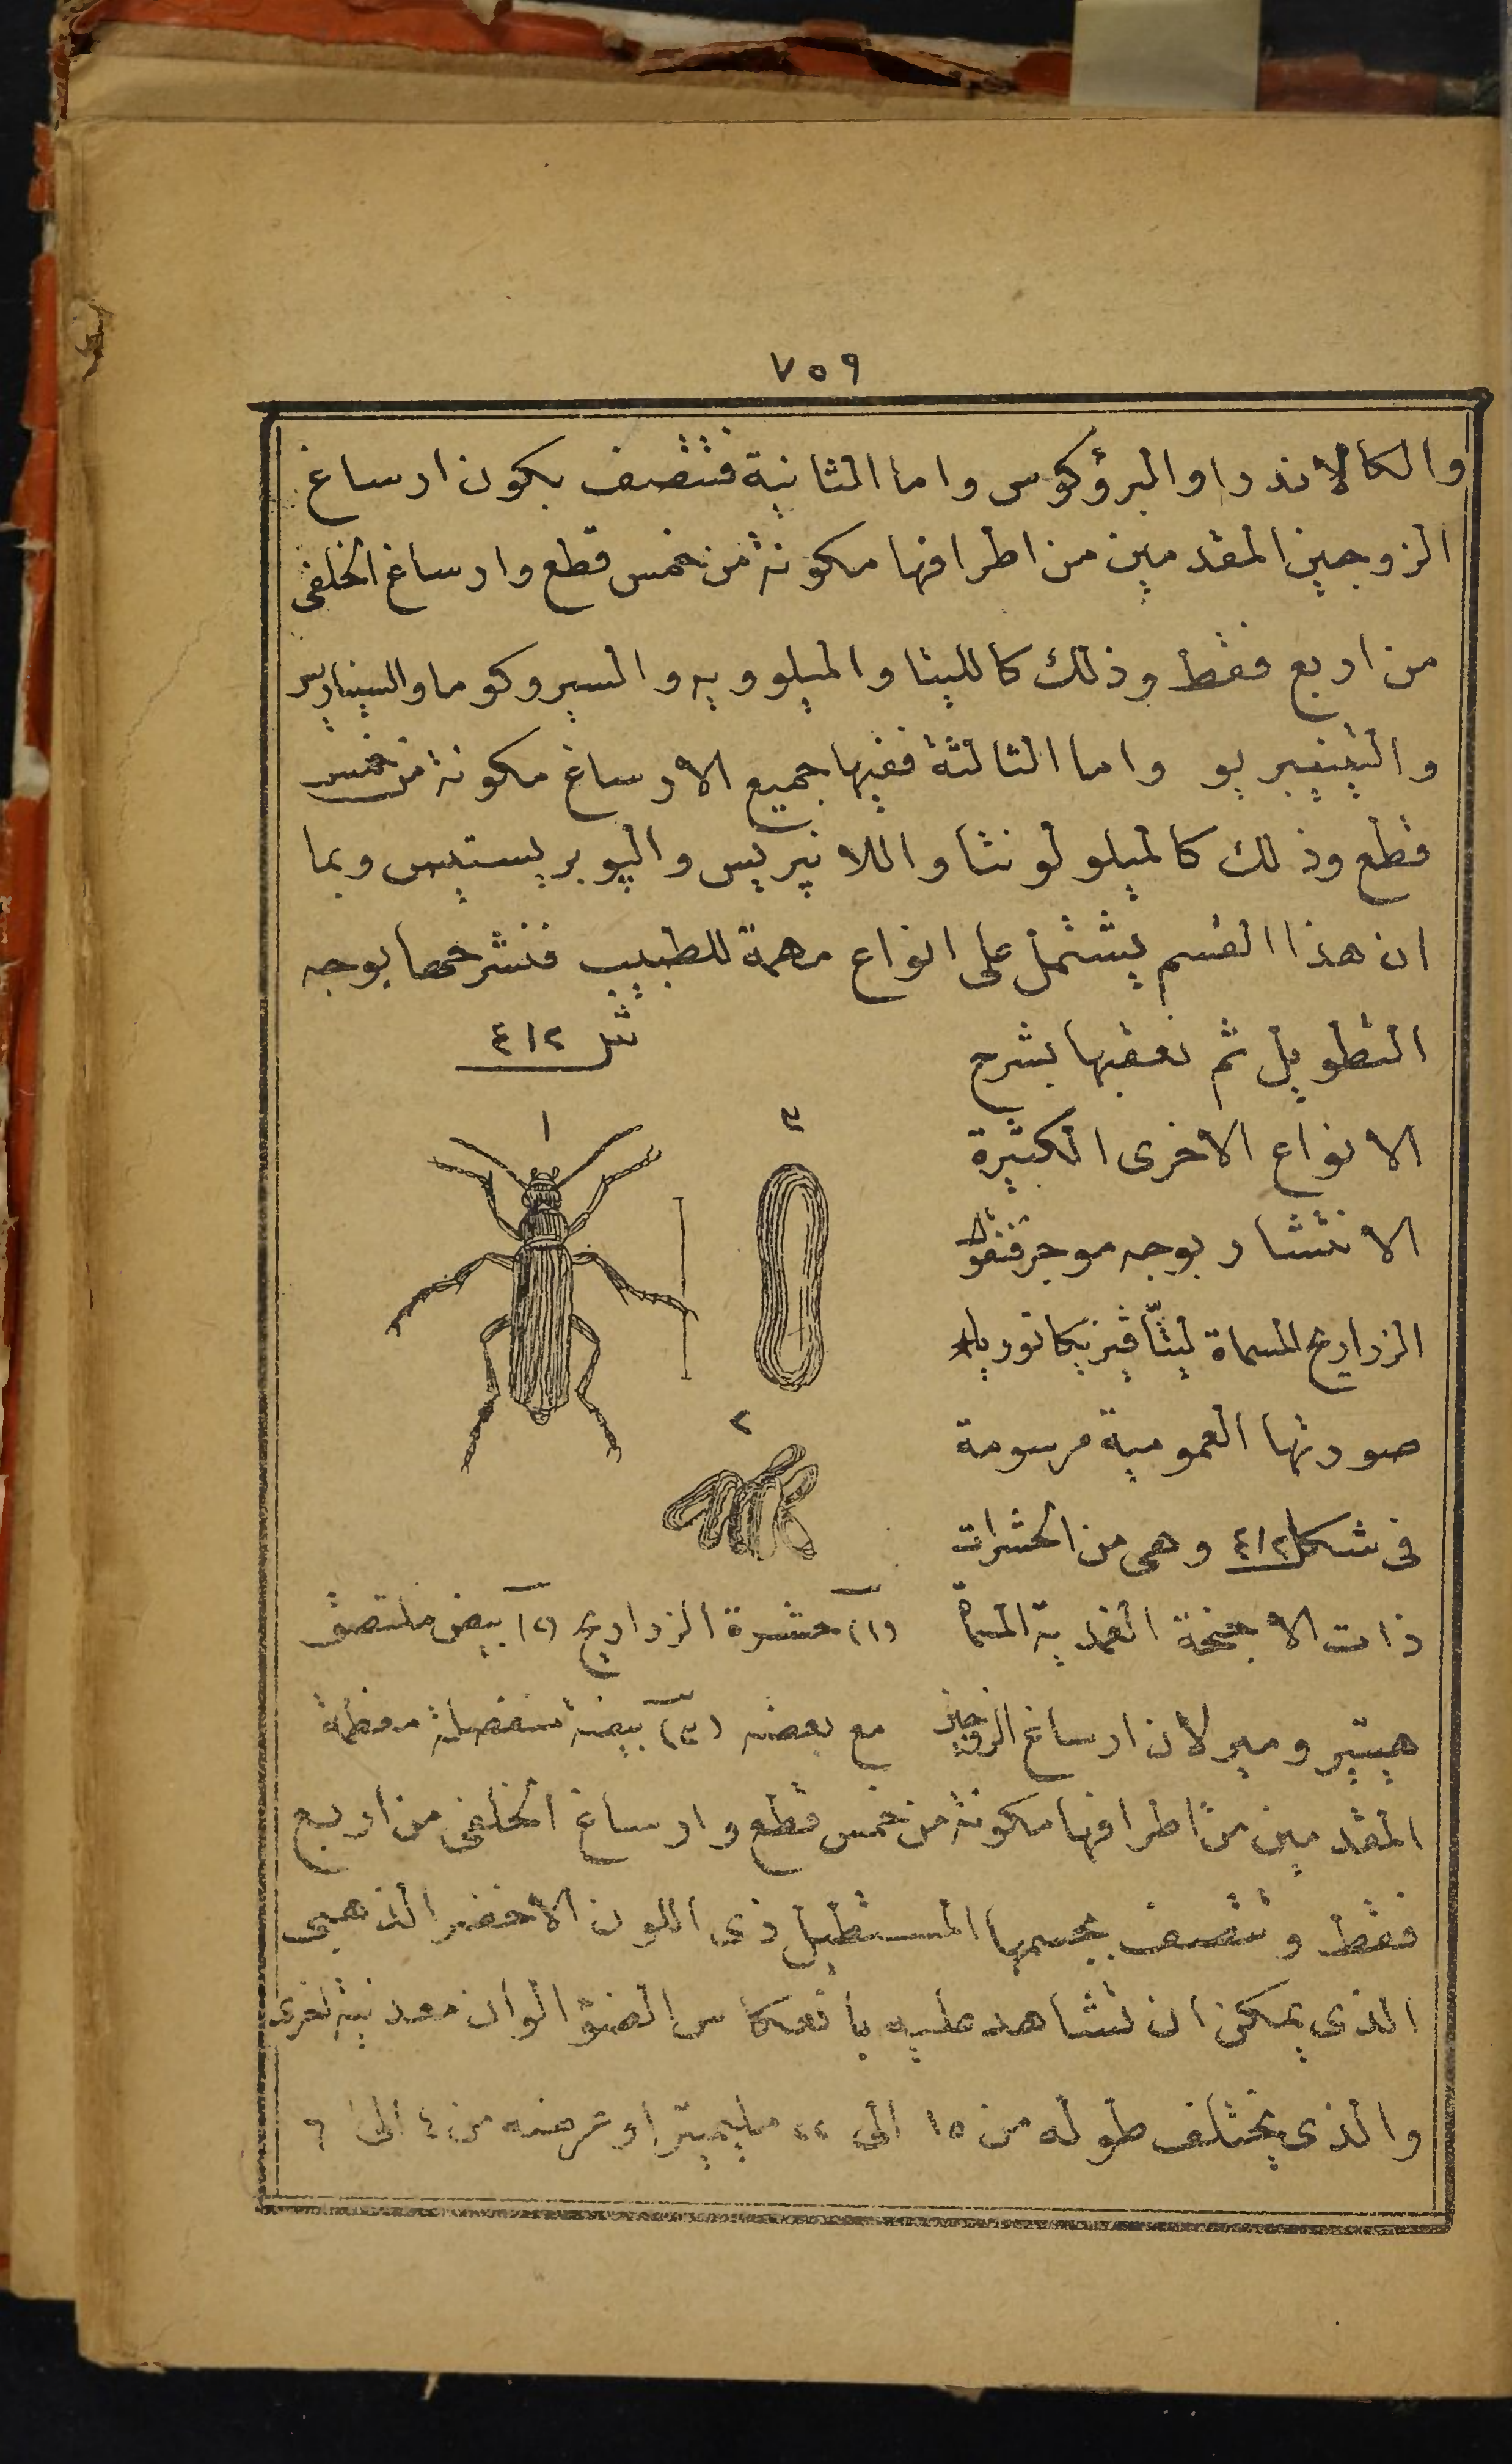 ٧٥٩
والكالاندرا والبرؤكوس واما الثانية فتتصف بكون ارساغ
الزوجين المقدمين من اطرافها مكونة من خمس قطع وارساغ الخلفى
من اربع فقط وذلك كالليتا والميلوويه والسيروكوما والسيناريس
والتينيبريو واما الثالثة ففيها جميع الارساغ مكونة من خمس
قطع وذلك كالميلولونتا واللانپريس والپوبريستيس وبما
ان هذا القسم يشتمل على انواع مهمة للطبيب فنشرحها بوجه
التطويل ثم نعقبها بشرح
الانواع الاخرى الكثيرة
الانتشار بوجه موجز فنقول
الزراريح المسماة ليتّا ڤيزيكاتوريا
صورتها العمومية مرسومة
فى شكل ٤١٢ وهى من الحشرات
ذات الاجنحة الغمدية المسماة
هيتيروميرلان ارساغ الزوجين
شكل ٤١٢
١
٣
٢
(١) حشرة الزراريح (٢) بيض ملتصق
مع بعضه (٣) بيضة منفصلة معظمة
المقدمين من اطرافها مكونة من خمس قطع وارساغ الخلفى من اربع
فقط وتتصف بجسمها المستطيل ذى اللون الاخضر الذهبى
الذى يمكن ان تشاهد عليه بانعكاس الضؤ الوان معدنية اخرى
والذى يختلف طوله من ١٥ الى ٢٢ مليميترا وعرضه من ٤ الى ٦